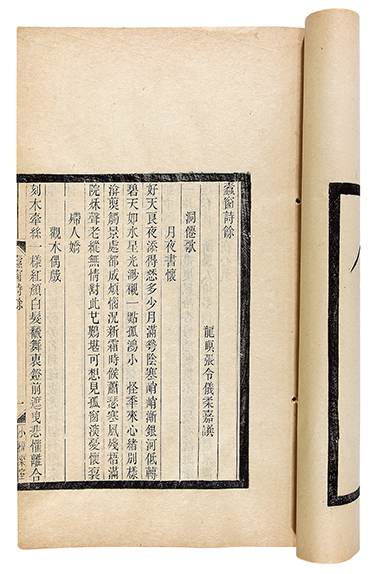 蠹窗詩餘
龍眠張令儀柔嘉譔
洞僊歌
月夜書懷
好天良夜添得愁多少月滿陰寒峭峭漸銀河低轉
碧天如水星光一點孤鴻小 怪年來心緒別樣
煎觸景處都成煩惱況新霜時候蕭瑟寒風殘梧滿
院秌聲老縱無情對此也堪可想見孤窗憂懷
殢人嬌
觀木偶戲
刻木牽絲一樣紅顏白髮舞裏鐙前遮莫悲懽離合
蠹窗詩餘 一 小檀欒室